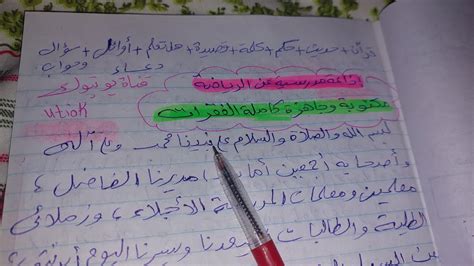 قرآن + حديث + حكم + كلمة + قصيدة + هل تعلم + أوائل + سؤال وجواب
دعاء
إذاعة مدرسية عن الرياضة
قناة يوتيوب
مكتوبة وجاهزة كاملة الفقرات
utiok
بسم الله والصلاة والسلام على نبينا محمد وعلى آله
وأصحابه أجمعين أما مديرنا الفاضل ،
معلمين ومعلمات المدرسة الأجلاء ، وزملائي
الطلبة والطالبات ويسرنا اليوم أن